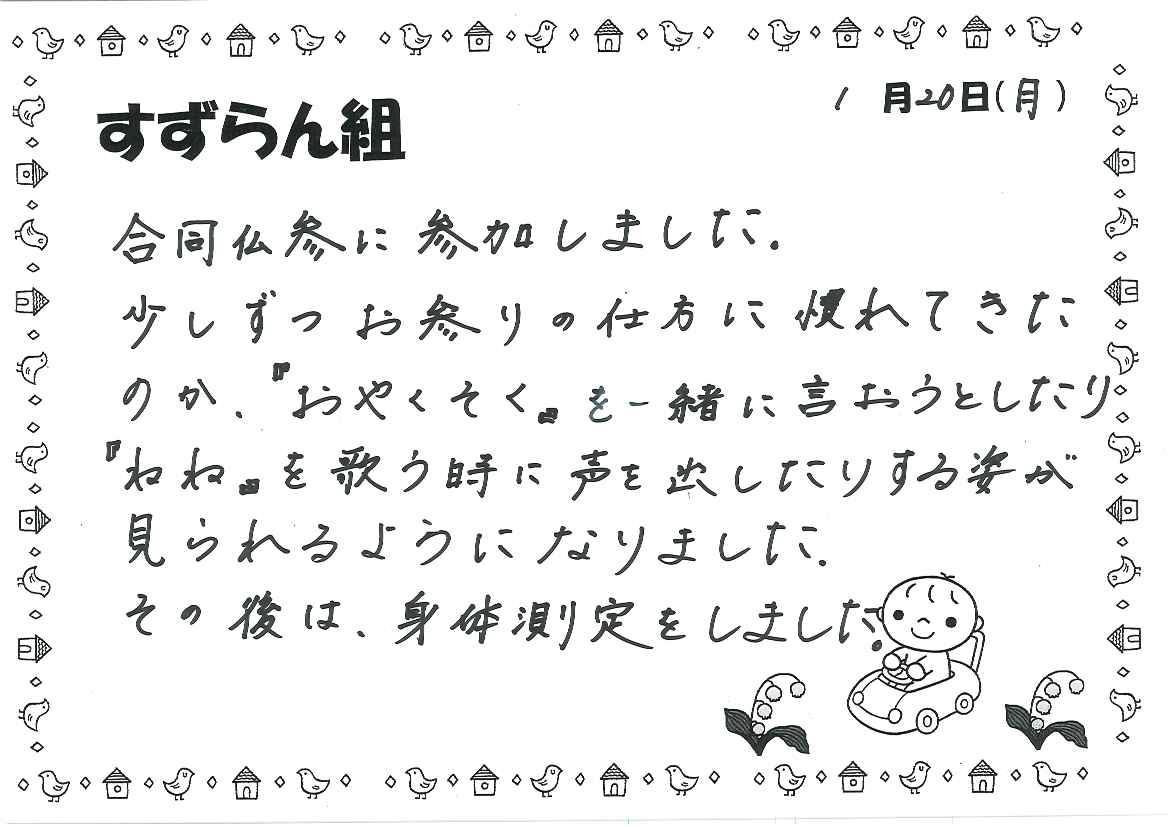 1月20日(月)
すずらん組
合同仏参に参加しました。
少しずつお参りの仕方に慣れてきた
のか、『おやくそく』を一緒に言おうとしたり
『ねね』を歌う時に声を出したりする姿が
見られるようになりました。
その後は、身体測定をしました。